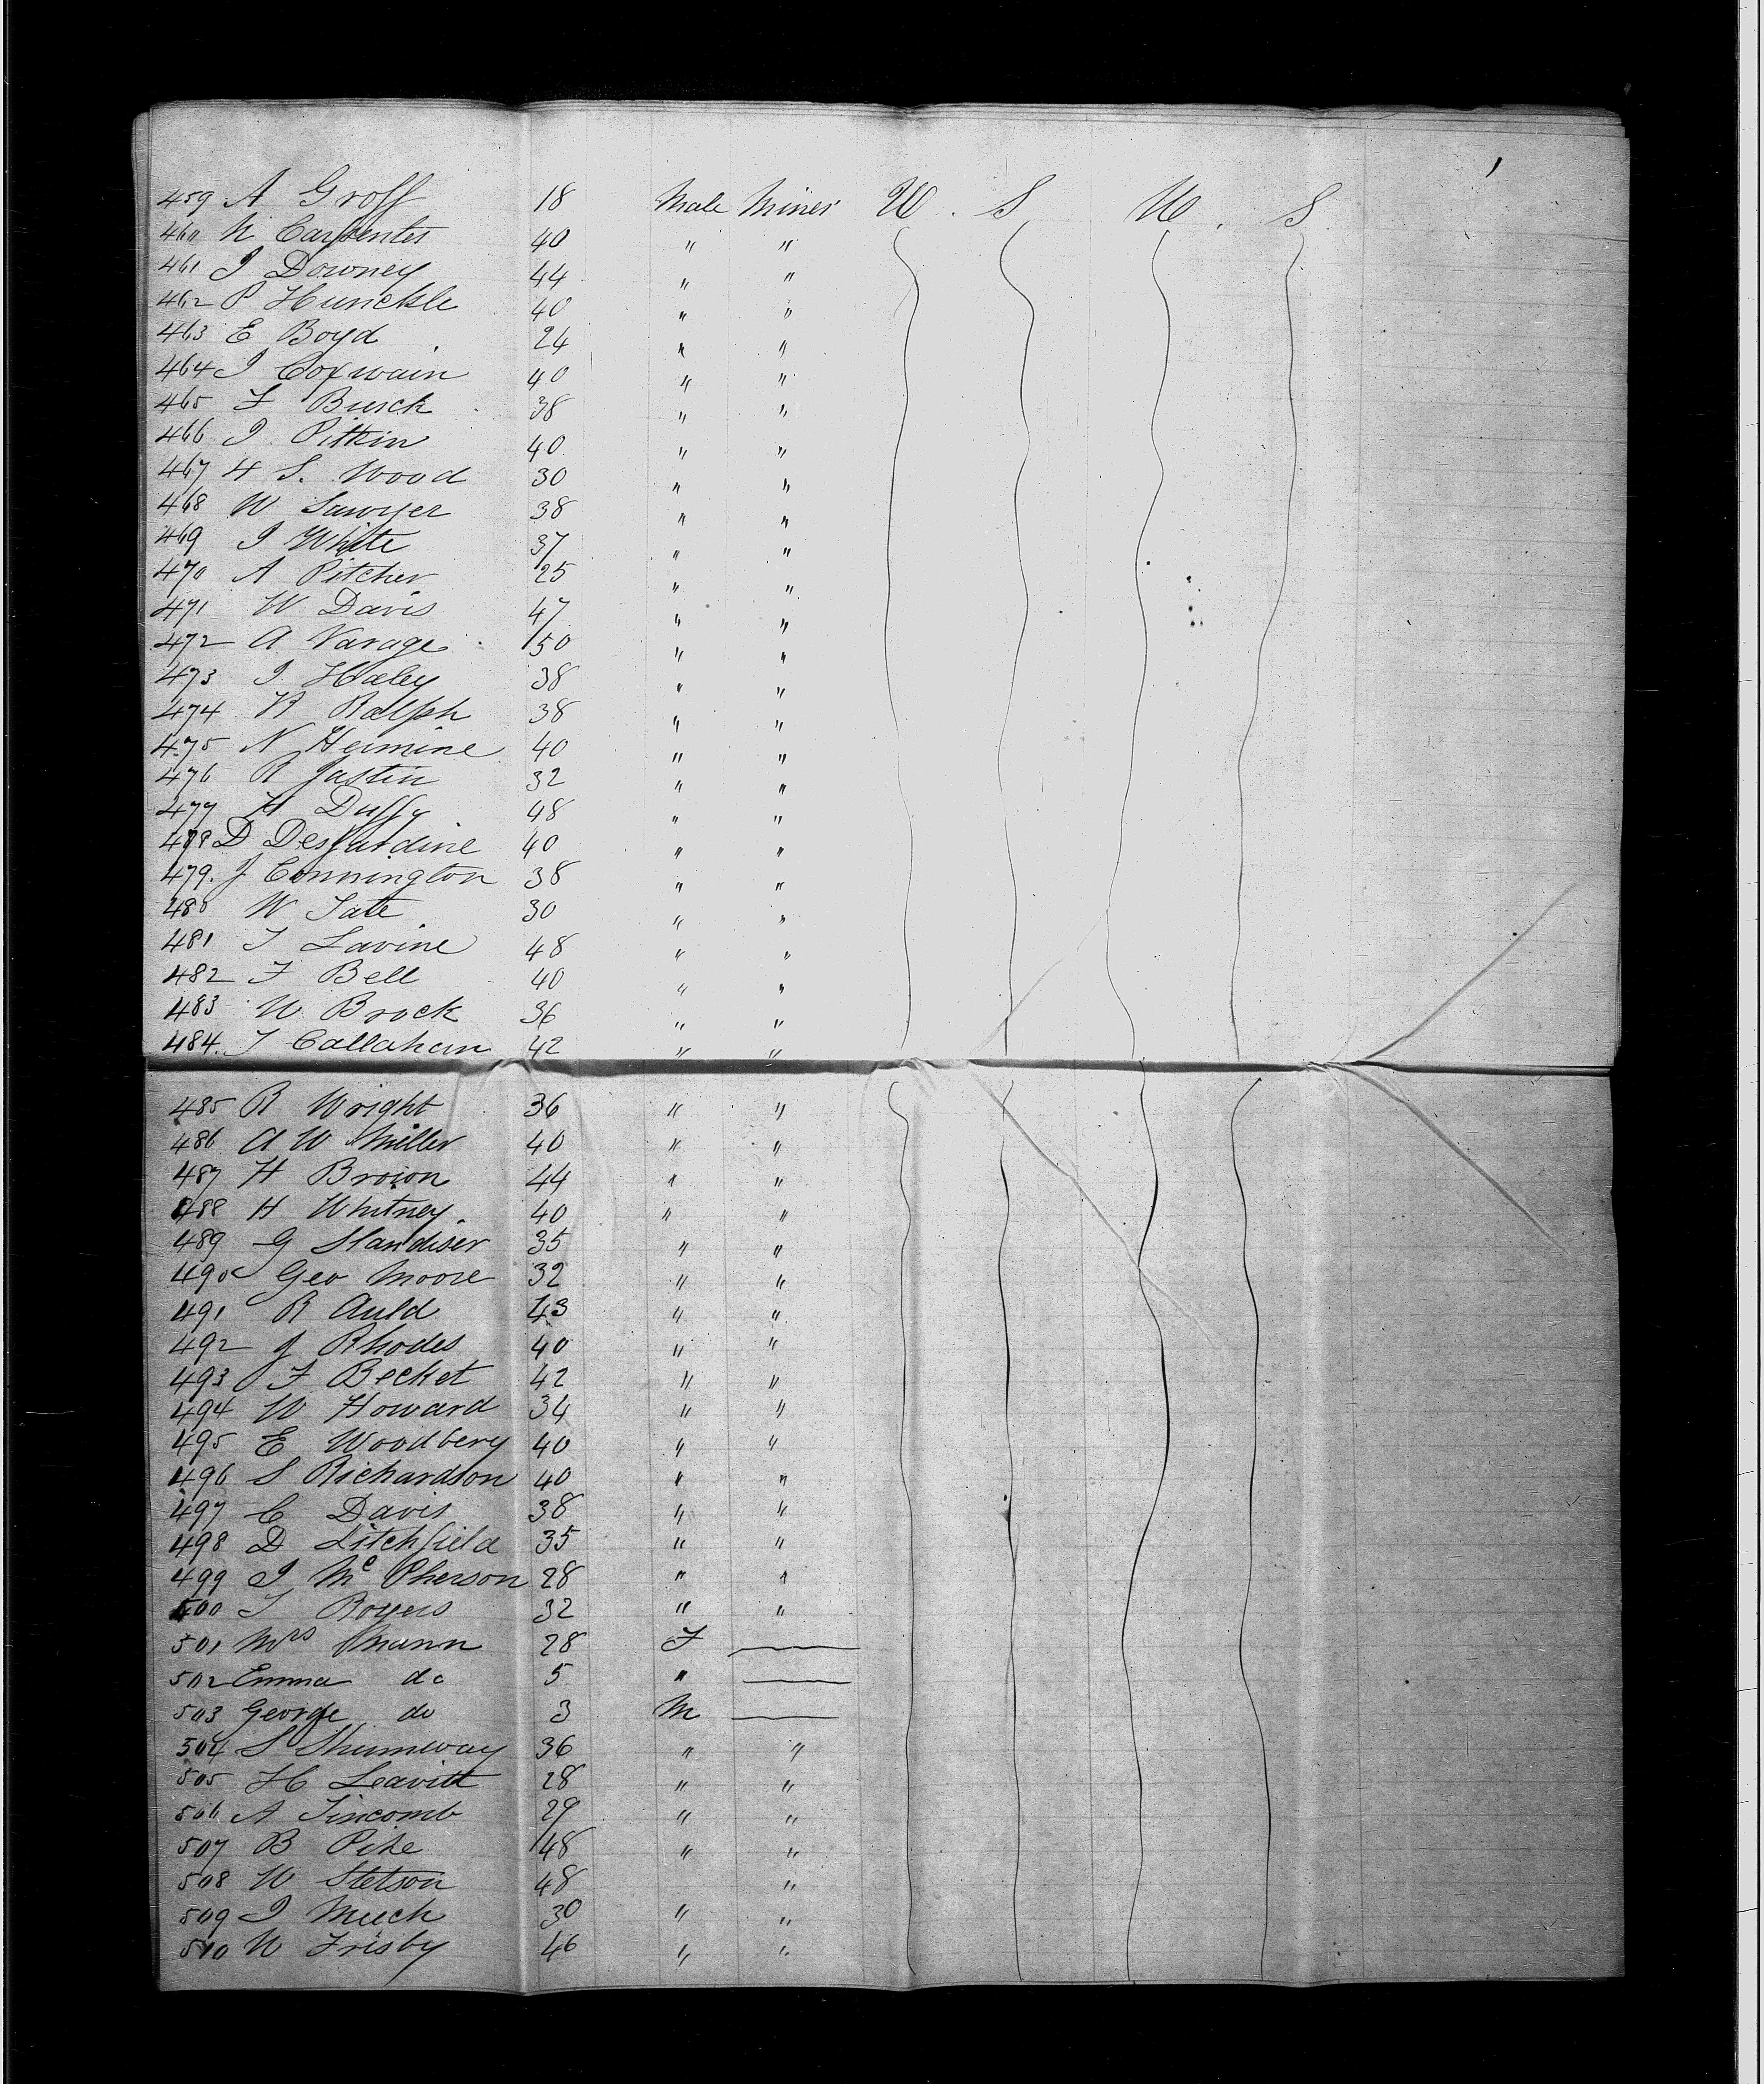 459 A Groff 18 Male Miner U . S U . S
460 N Carpenter 40 " "
461 J Downey 44 " "
462 P Hunckle 40 " "
463 E Boyd 24 " "
464 J Coxwain 40 " "
465 F Burck 38 " "
466 J Pitkin 40 " "
467 H S. Wood 30 " "
468 W Sawyer 38 " "
469 J White 37 " "
470 A Pitcher 25 " "
471 W Davis 47 " "
472 A Varage 50 " "
473 J Haley 38 " "
474 R Ralph 38 " "
475 N Hermine 40 " "
476 R Justin 32 " "
477 H Duffy 48 " "
478 D Desjardine 40 " "
479. J Connington 38 " "
480 W Tate 30 " "
481 T Lavine 48 " "
482 F Bell 40 " "
483 W Brock 36 " "
484. T Callahan 42 " "
485 R Wright 36 " "
486 A W Miller 40 " "
487 H Brown 44 " "
488 H Whitney 40 " "
489 G Standiser 35 " "
490 Geo Moore 32 " "
491 R Auld 43 " "
492 J Rhodes 40 " "
493 F Becket 42 " "
494 W Howard 34 " "
495 E Woodbery 40 " "
496 S Richardson 40 " "
497 C Davis 38 " "
498 D Litchfield 35 " "
499 J Mc Pherson 28 " "
500 T Boyers 32 " "
501 Mrs Mann 28 F
502 Emma do 5 "
503 George do 3 M
504 S Shumway 36 " "
505 H Leavitt 28 " "
506 A Tincomb 29 " "
507 B Pike 48 " "
508 W Stetson 48 "
509 J Meech 30 " "
510 W Frisby 46 " "